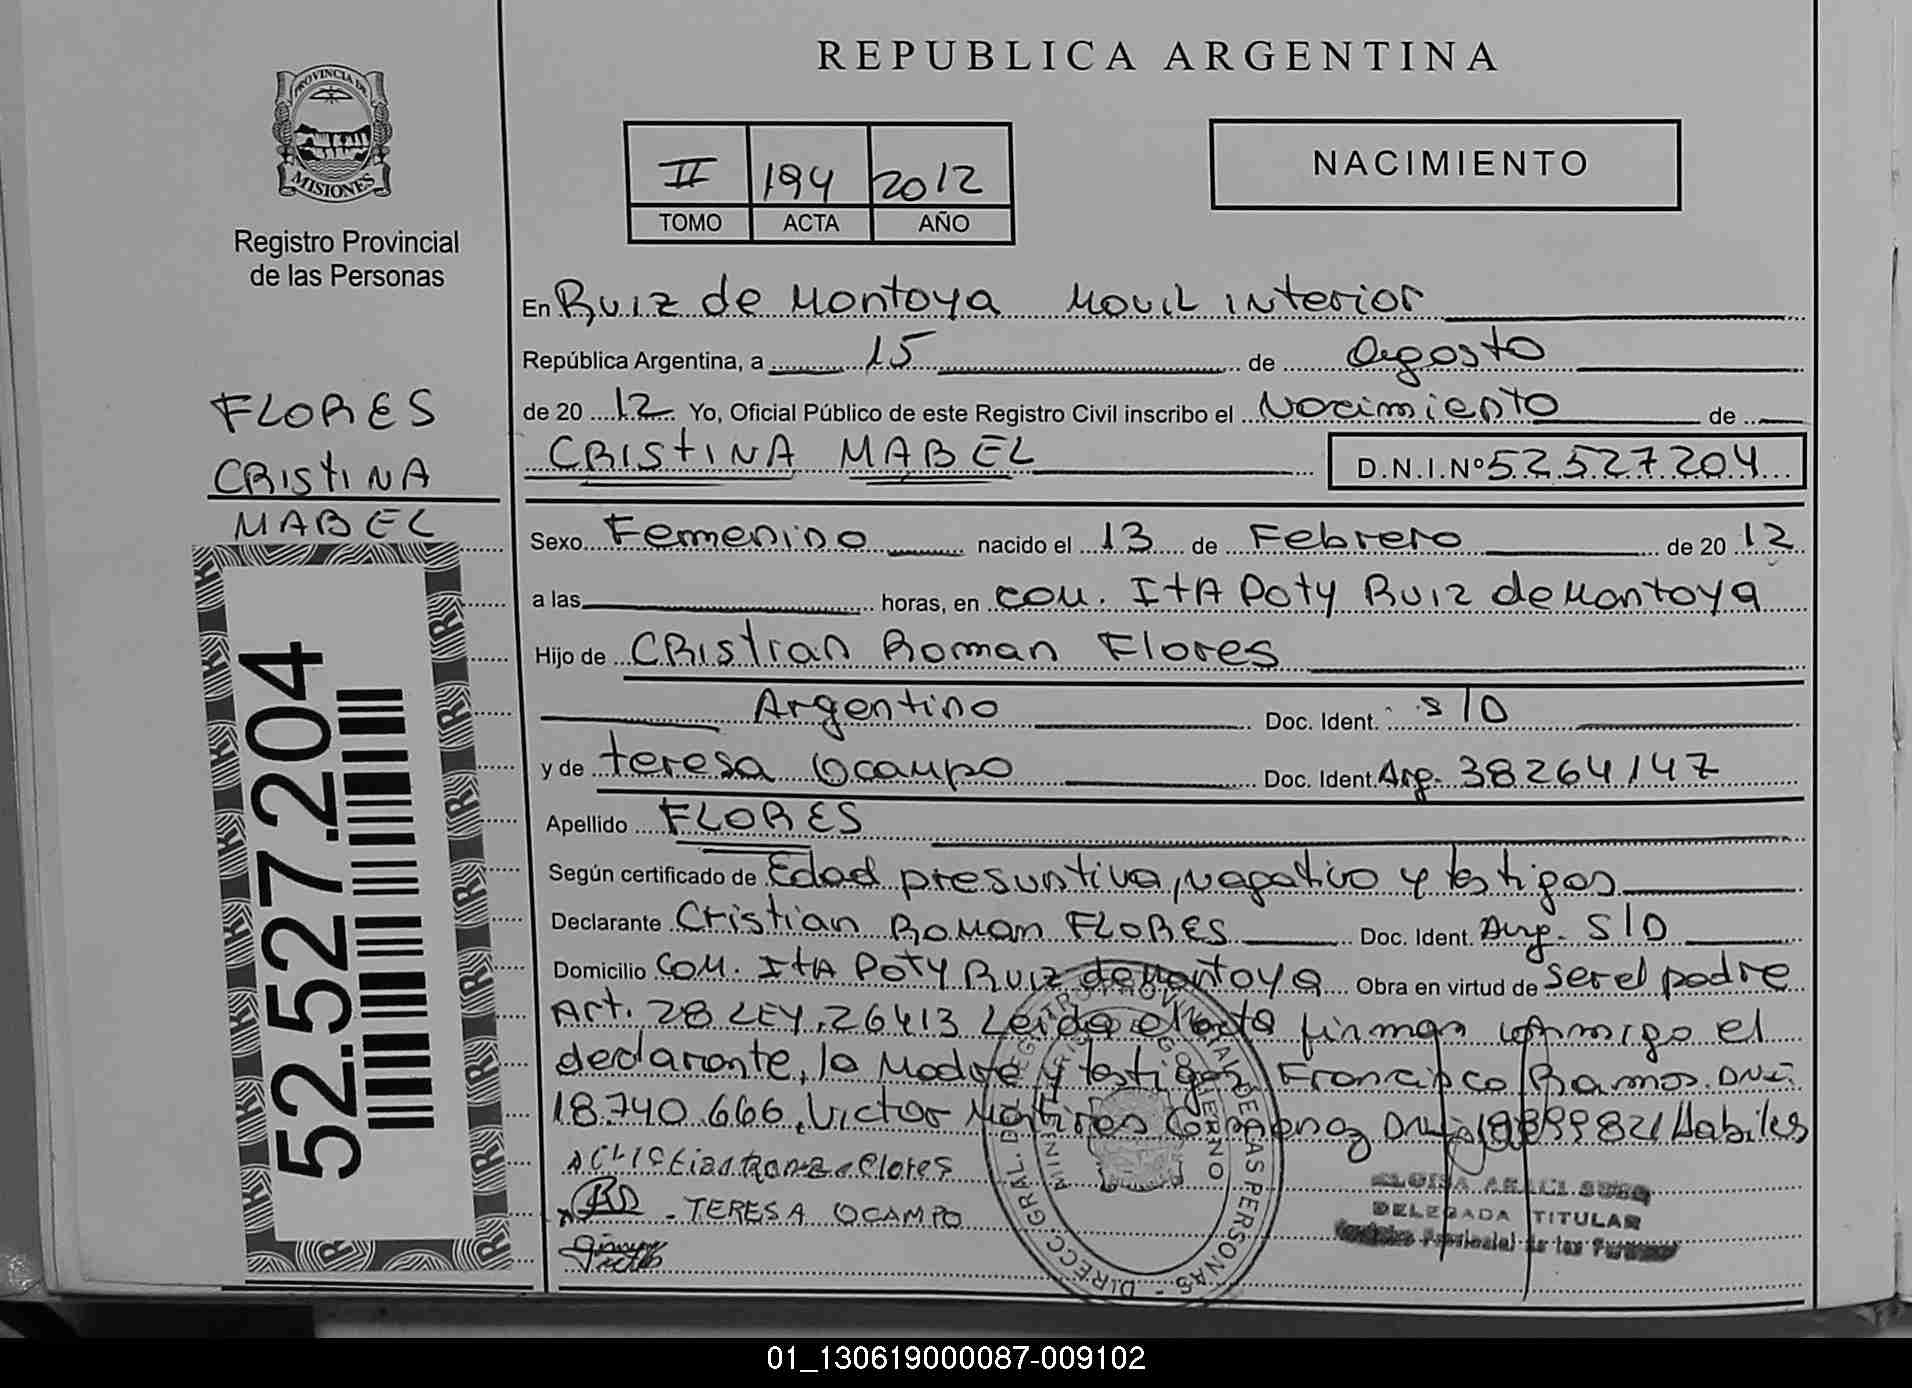 REPUBLICA ARGENTINA
PROVINCIA DE
MISIONES
Registro Provincial
de las Personas
II 194 2012
TOMO ACTA AÑO
NACIMIENTO
En Ruiz de Montoya Movil interior
República Argentina, a 15 de agosto
de 20 12 Yo, Oficial Público de este Registro Civil inscribo el Nacimiento de
CRIStINA MABEL D.N.I.Nº 52.527.204
FLORES
CRIStINA
MABEL
52.527.204
Sexo Femenino nacido el 13 de Febrero de 20 12
a las horas, en COM. ItA Poty Ruiz de Montoya
Hijo de CRistian Roman Flores
Argentino Doc. Ident. S/D
y de teresa Ocampo Doc. Ident. Arg. 38264147
Apellido FLORES
Según certificado de Edad presuntiva, negativo y testigos
Declarante Cristian Roman FLORES Doc. Ident. Arg. S/D
Domicilio COM. ItA Poty Ruiz de Montoya Obra en virtud de ser el padre
Art. 28 LEY. 26413 Leida el acta firman conmigo el
declarante, la Madre y testigos Francisco Ramos. DNI.
18.740.666, Victor DNI Habiles
Flores
TERESA OCAMPO
DELEGADA TITULAR
DIRECC. GRAL. DE REGISTRO PROVINCIAL DE LAS PERSONAS
01_130619000087-009102